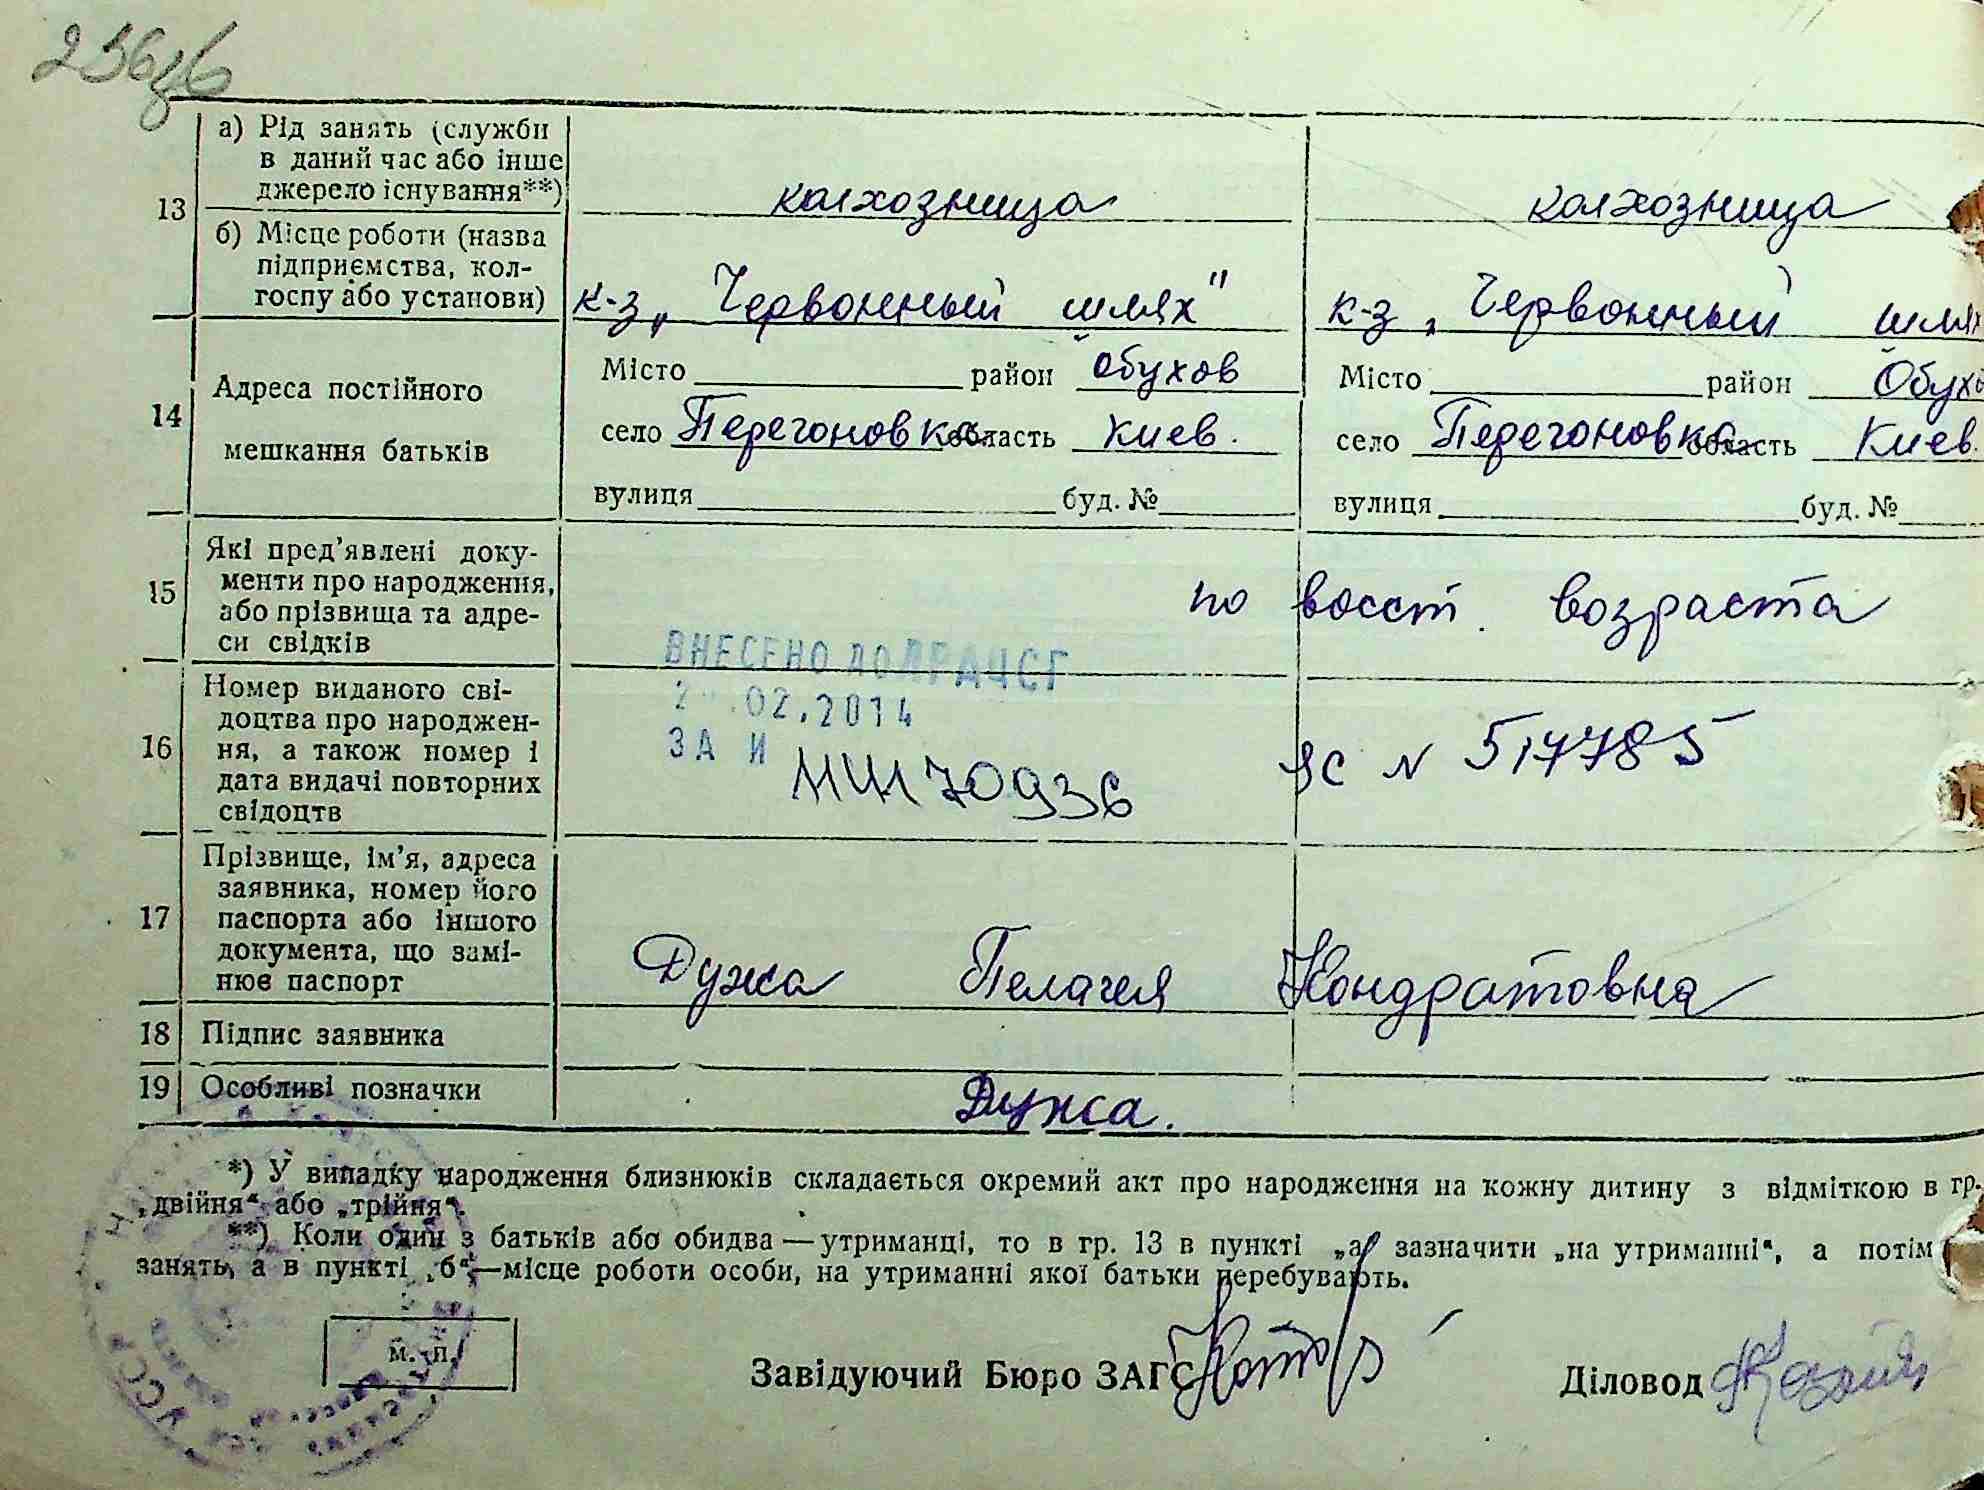 13
а) Рід занять (служби
в даний час або інше
джерело існування**)
колхозница
колхозница
б) Місце роботи (назва
підприємства, кол-
госпу або установи)
к-з „Червонный шлях"
к-з „Червонный шлях
14
Адреса постійного
мешкання батьків
Місто район Обухов
село Перегоновка область Киев.
вулиця буд. №
Місто район Обухо
село Перегоновка область Киев.
вулиця буд. №
15
Які пред'явлені доку-
менти про народження,
або прізвища та адре-
си свідків
по восст. возраста
ВНЕСЕНО ДО ДРАЦСГ
.02.2014
ЗА И
16
Номер виданого сві-
доцтва про народжен-
ня, а також номер і
дата видачі повторних
свідоцтв
70936
ЯС N 517785
17
Прізвище, ім'я, адреса
заявника, номер його
паспорта або іншого
документа, що замі-
нює паспорт
Дужа Пелагея Кондратовна
18 Підпис заявника
19 Особливі позначки
Дужа.
*) У випадку народження близнюків складається окремий акт про народження на кожну дитину з відміткою в гр.
„двійня“ або „трійня“.
**) Коли один з батьків або обидва — утриманці, то в гр. 13 в пункті „а“ зазначити „на утриманні“, а потім
занять, а в пункті „б“—місце роботи особи, на утриманні якої батьки перебувають.
м. п.
Завідуючий Бюро ЗАГС
Діловод
УССР